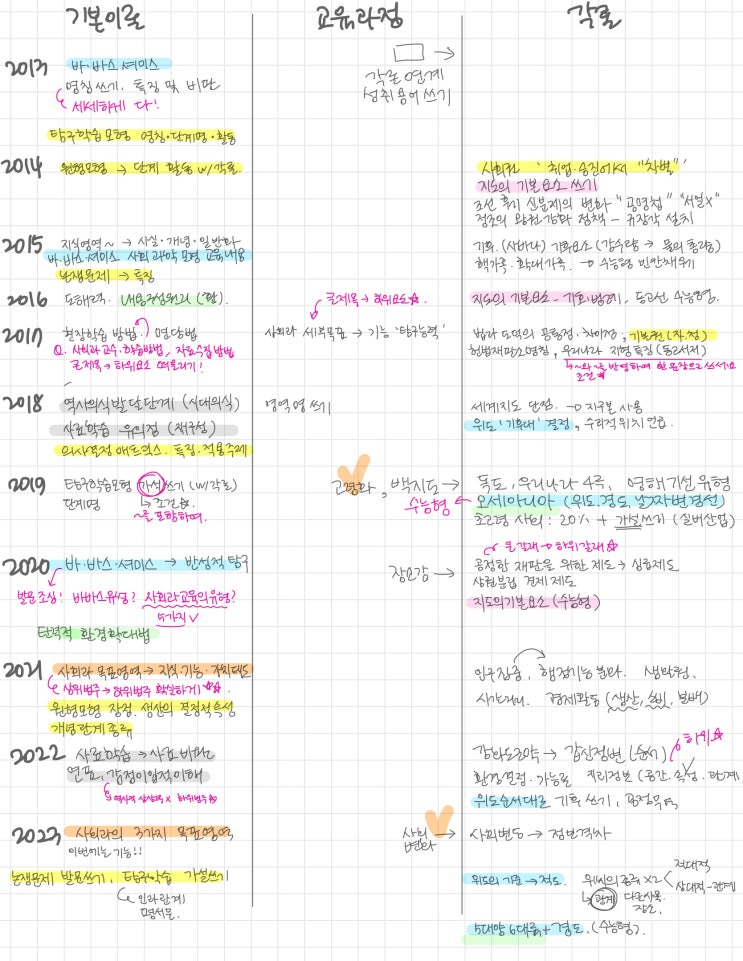 기본이론 교육과정 각론
2013 바·바스 셔미스
명칭쓰기, 특징 및 비판
세세하게 다!
각론 연계
성취용어 쓰기
탐구학습모형 명칭·단계명·활동
2014 원형모형 → 단계 활동 w/각론.
사회권 '취업·승진에서 "차별"'
지도의 기본요소 쓰기
조선 후기 신분제의 변화 "공명첩" "서얼X"
정조의 왕권강화 정책 - 규장각 설치
2015 지식영역~ → 사실·개념·일반화
바·바스·셔미스 사회과학 모형 교육내용
논쟁문제 → 특징
기후. (사바나) 기후요소 (강수량 →
핵가족·확대가족 → 수능형 빈칸채우기
2016 도해력. 내용구성원리 (환).
글제목 → 하위요소☆.
지도의 기본요소 - 기호,범례. 등고선 수능형.
2017 현장학습 방법. 면담법
Q. 사회과 교수·학습방법, 자료수집 방법
글제목 → 하위요소 떠올리기!
사회과 세부목표 → 기능 '탐구능력'
법과 도덕의 공통점·차이점, 기본권 (자.청)
헌법재판소명칭, 우리나라 지형특징 (동고서저)
↳~와 ~를 반영하여 한 문장으로 쓰세요
조건☆
2018 역사의식발달단계 (시대의식)
사료학습 유의점 (재구성)
의사결정 매트릭스. 특징·적용주제
영역명 쓰기
세계지도 단점. → 지구본 사용
위도 '기후대' 결정, 수리적 위치 언급.
2019 탐구학습모형 가설쓰기 (w/각론)
단계명 ↳ 조건☆.
~를 포함하여.
고령화, 백지도 →
수능형 ←
독도, 우리나라 4극, 영해기선 유형
오세아니아 (위도.경도, 날짜변경선)
초고령 사회 : 20% + 가설쓰기 (실버산업)
2020 바·바스·셔미스 → 반성적 탐구
발문조심! 바바스유형? 사회과교육의유형?
5가지 ∨
탄력적 환경확대법
장소감 →
글 갈래 → 하위갈래☆
공정한 재판을 위한 제도 → 심급제도
삼권분립 견제 제도
지도의 기본요소 (수능형)
2021 사회과 목표영역 → 지식·기능·가치태도
↳ 상위범주 → 하위범주 확실하기!☆☆.
원형모형 장점. 생산의 결정적 특성
개념관계종류
인구집중, 행정기능분리.
경제활동 (생산, 소비, 분배)
2022 사료학습 → 사료비판
연표, 감정이입적이해
↳ 역사적 상상력 X 하위범주☆
강화도조약 → 갑신정변 (순서)
하위☆
환경결정·가능론 지리정보 (공간·속성·관계
위도순서대로 기후 쓰기, 공정무역
2023 사회과의 3가지 목표영역
이번에는 기능!!
사회
변화 → 사회변동 → 정보격차
논쟁문제 발문쓰기, 탐구학습 가설쓰기
↳ 인과관계
명서문.
위도의 기준 → 적도. 위치의 종류 ×2 < 절대적
상대적-관계
↳ 관계 다른사물.
장소.
5대양 6대륙 + 경도. (수능형).